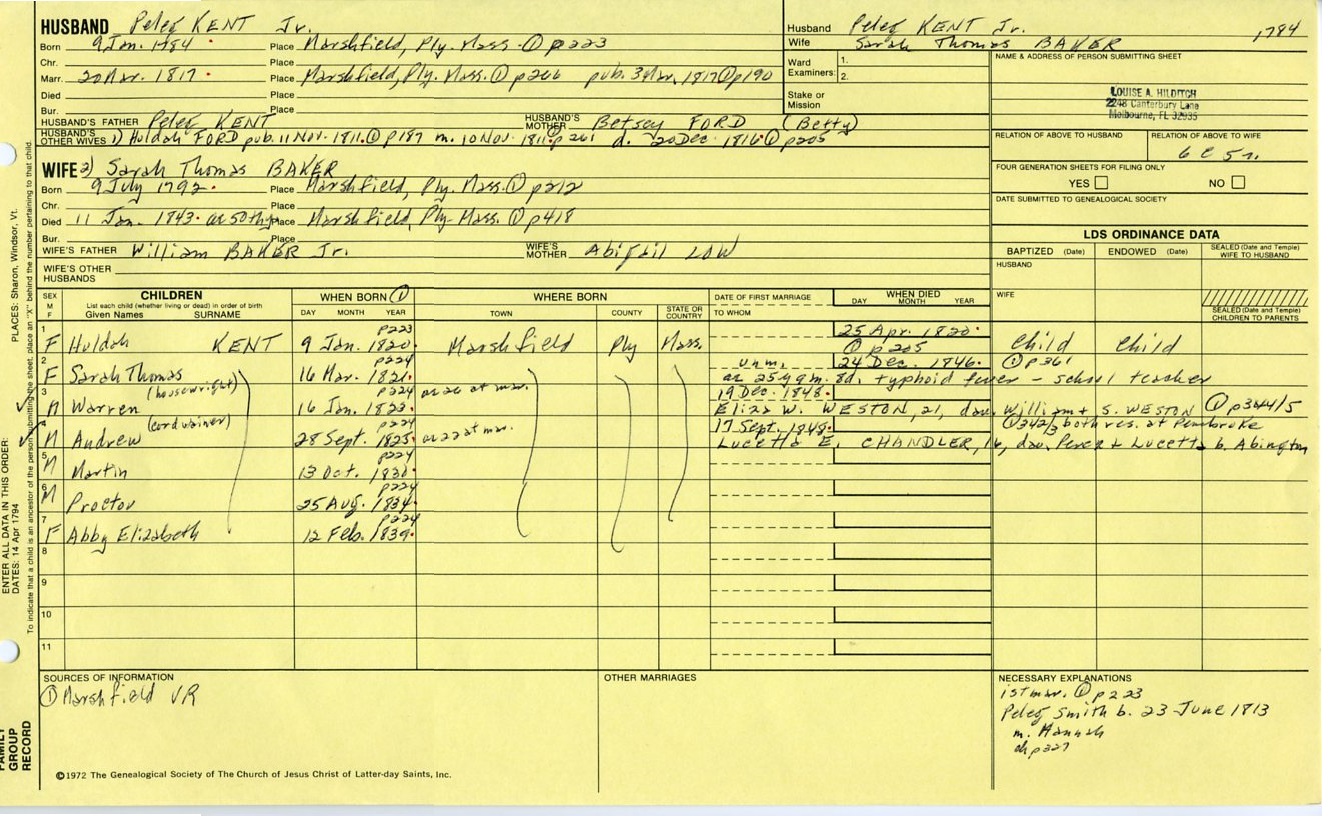 HUSBAND Peleg KENT Jr.
Born 9 Jan. 1784 Place Marshfield, Ply. Mass. ① p223
Chr. Place
Marr. 20 Mar. 1817 Place Marshfield, Ply. Mass. ① p266 pub. 3 Mar. 1817 ① p190
Died Place
Bur. Place
HUSBAND'S FATHER Peleg KENT HUSBAND'S MOTHER Betsey FORD (Betty)
HUSBAND'S OTHER WIVES 1) Huldah FORD pub. 11 Nov. 1811. ① p187 m. 10 Nov. 1811. ① p261 d. 20 Dec. 1816 ① p205
WIFE 2) Sarah Thomas BAKER
Born 9 July 1792 Place Marshfield, Ply. Mass. ① p212
Chr. Place
Died 11 Jan. 1843. ae 50th yr Place Marshfield, Ply. Mass. ① p418
Bur. Place
WIFE'S FATHER William BAKER Jr. WIFE'S MOTHER Abigail LOW
WIFE'S OTHER HUSBANDS
Husband Peleg KENT Jr. 1784
Wife Sarah Thomas BAKER
Ward Examiners: 1.
2.
Stake or Mission
NAME & ADDRESS OF PERSON SUBMITTING SHEET
LOUISE A. HILDITCH
2248 Canterbury Lane
Melbourne, FL 32935
RELATION OF ABOVE TO HUSBAND RELATION OF ABOVE TO WIFE
6 C 5 r.
FOUR GENERATION SHEETS FOR FILING ONLY
YES NO
DATE SUBMITTED TO GENEALOGICAL SOCIETY
LDS ORDINANCE DATA
BAPTIZED (Date) ENDOWED (Date) SEALED (Date and Temple) WIFE TO HUSBAND
HUSBAND
WIFE
SEALED (Date and Temple) CHILDREN TO PARENTS
SEX M F CHILDREN List each child (whether living or dead) in order of birth Given Names SURNAME
WHEN BORN ① DAY MONTH YEAR
WHERE BORN TOWN COUNTY STATE OR COUNTRY
DATE OF FIRST MARRIAGE TO WHOM
WHEN DIED DAY MONTH YEAR
1 F Huldah KENT 9 Jan. 1820. p223 Marshfield Ply Mass. 25 Apr. 1820. ① p205 Child Child
2 F Sarah Thomas 16 Mar. 1821. p224 unm. 24 Dec. 1846. ① p361
ae 25 y 9 m. 8d. typhoid fever - school teacher
3 M Warren (housewright) 16 Jan. 1823. p224 ae 26 at mar. 19 Dec. 1848.
Eliza W. WESTON, 21, dau. William + S. WESTON ① p344/5
4 M Andrew (cordwainer) 28 Sept. 1825. p224 ae 22 at mar. 17 Sept. 1848. ① 342/3 both res. at Pembroke
Lucetta E. CHANDLER, 16, dau. Perez + Lucetta b. Abington
5 M Martin 13 Oct. 1830. p224
6 M Proctor 25 Aug. 1834. p224
7 F Abby Elizabeth 12 Feb. 1839. p224
8
9
10
11
SOURCES OF INFORMATION
① Marshfield VR
OTHER MARRIAGES
NECESSARY EXPLANATIONS
1st mar. ① p223
Peleg Smith b. 23 June 1813
m. Hannah
ch p227
©1972 The Genealogical Society of The Church of Jesus Christ of Latter-day Saints, Inc.
FAMILY GROUP RECORD
ENTER ALL DATA IN THIS ORDER:
DATES: 14 Apr 1794
PLACES: Sharon, Windsor, Vt.
To indicate that a child is an ancestor of the person submitting the sheet, place an "X" behind the number pertaining to that child.